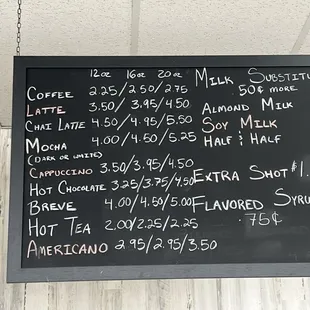 12oz 16oz 20oz
Coffee 2.25/2.50/2.75
Latte 3.50/3.95/4.50
Chai Latte 4.50/4.95/5.50
Mocha 4.00/4.50/5.25
(Dark or White)
Cappuccino 3.50/3.95/4.50
Hot Chocolate 3.25/3.75/4.50
Breve 4.00/4.50/5.00
Hot Tea 2.00/2.25/2.25
Americano 2.95/2.95/3.50
Milk Substitu
50¢ more
Almond Milk
Soy Milk
Half & Half
Extra Shot $1.
Flavored Syru
.75¢